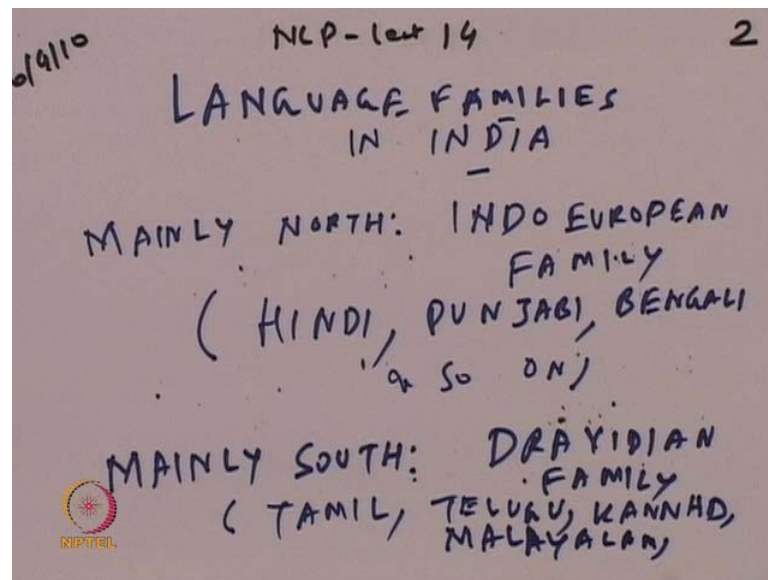 NLP - lect 14
2
LANGUAGE FAMILIES
IN INDIA
MAINLY NORTH: INDO EUROPEAN
FAMILY
( HINDI, PUNJABI, BENGALI
& SO ON)
MAINLY SOUTH: DRAVIDIAN
FAMILY
( TAMIL, TELUGU, KANNAD,
MALAYALAM,
NPTEL